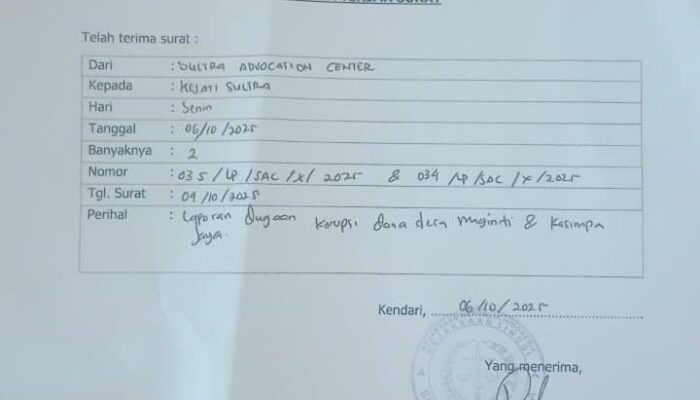 Telah terima surat :
Dari : SULTRA ADVOCATION CENTER
Kepada : KEJATI SULTRA
Hari : Senin
Tanggal : 06/10/2025
Banyaknya : 2
Nomor : 035/LP/SAC/X/2025 & 034/LP/SAC/X/2025
Tgl. Surat : 04/10/2025
Perihal : Laporan Dugaan korupsi dana desa maginti & Kasimpa
Jaya.
Kendari, 06/10/2025
Yang menerima,